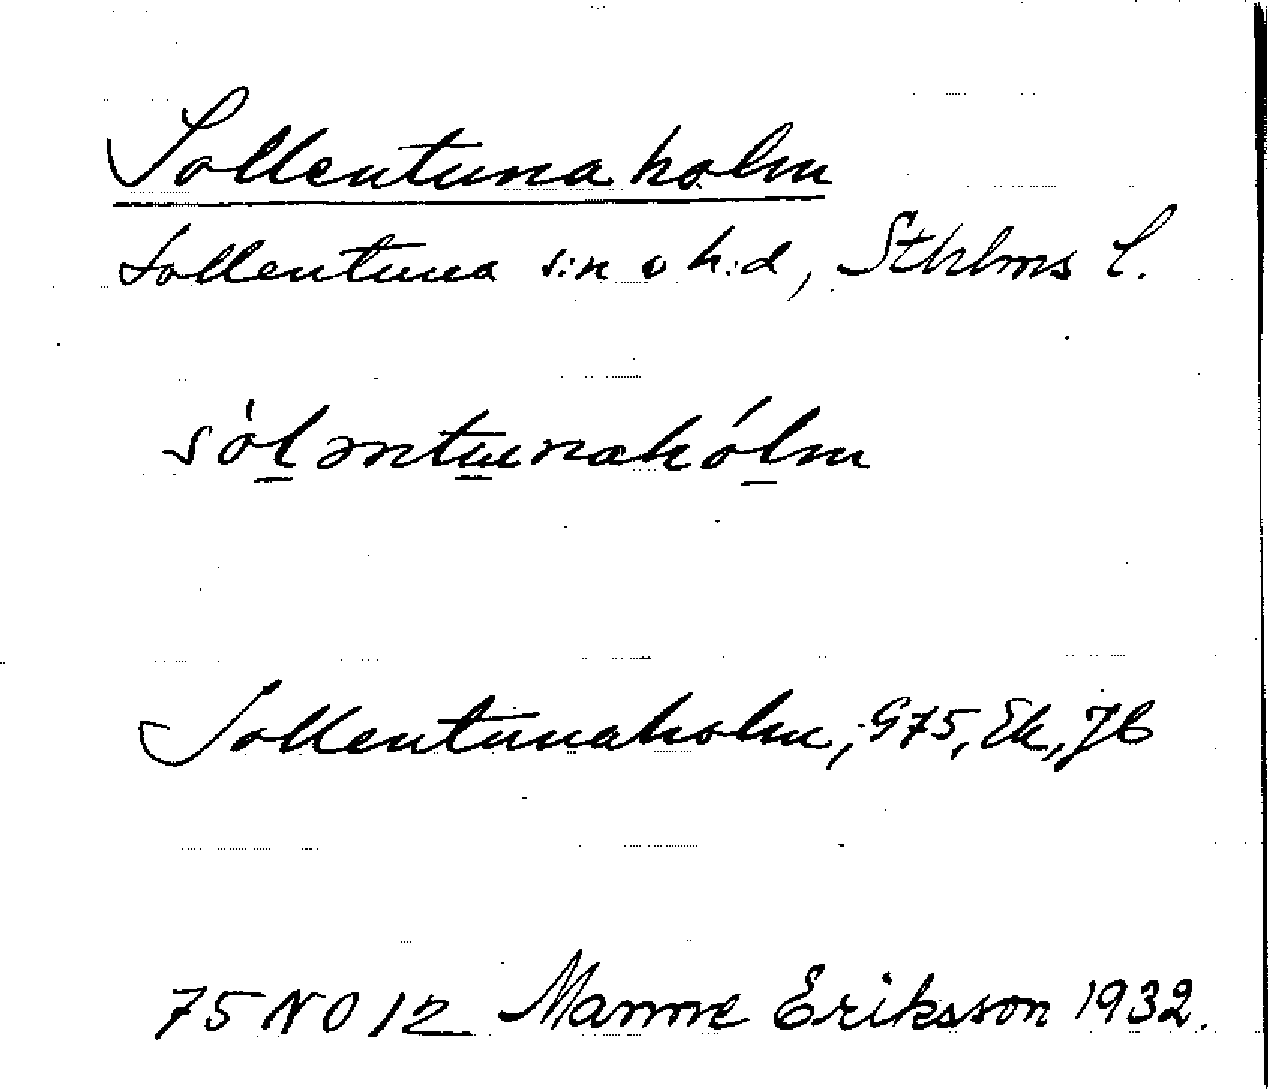 Sollentunaholm
Sollentuna s:n o h:d, Sthlms l.
sól̲əntu̲nahól̲m
Sollentunaholm, G75, Ek, Jb
75 NO 12 Manne Eriksson 1932.